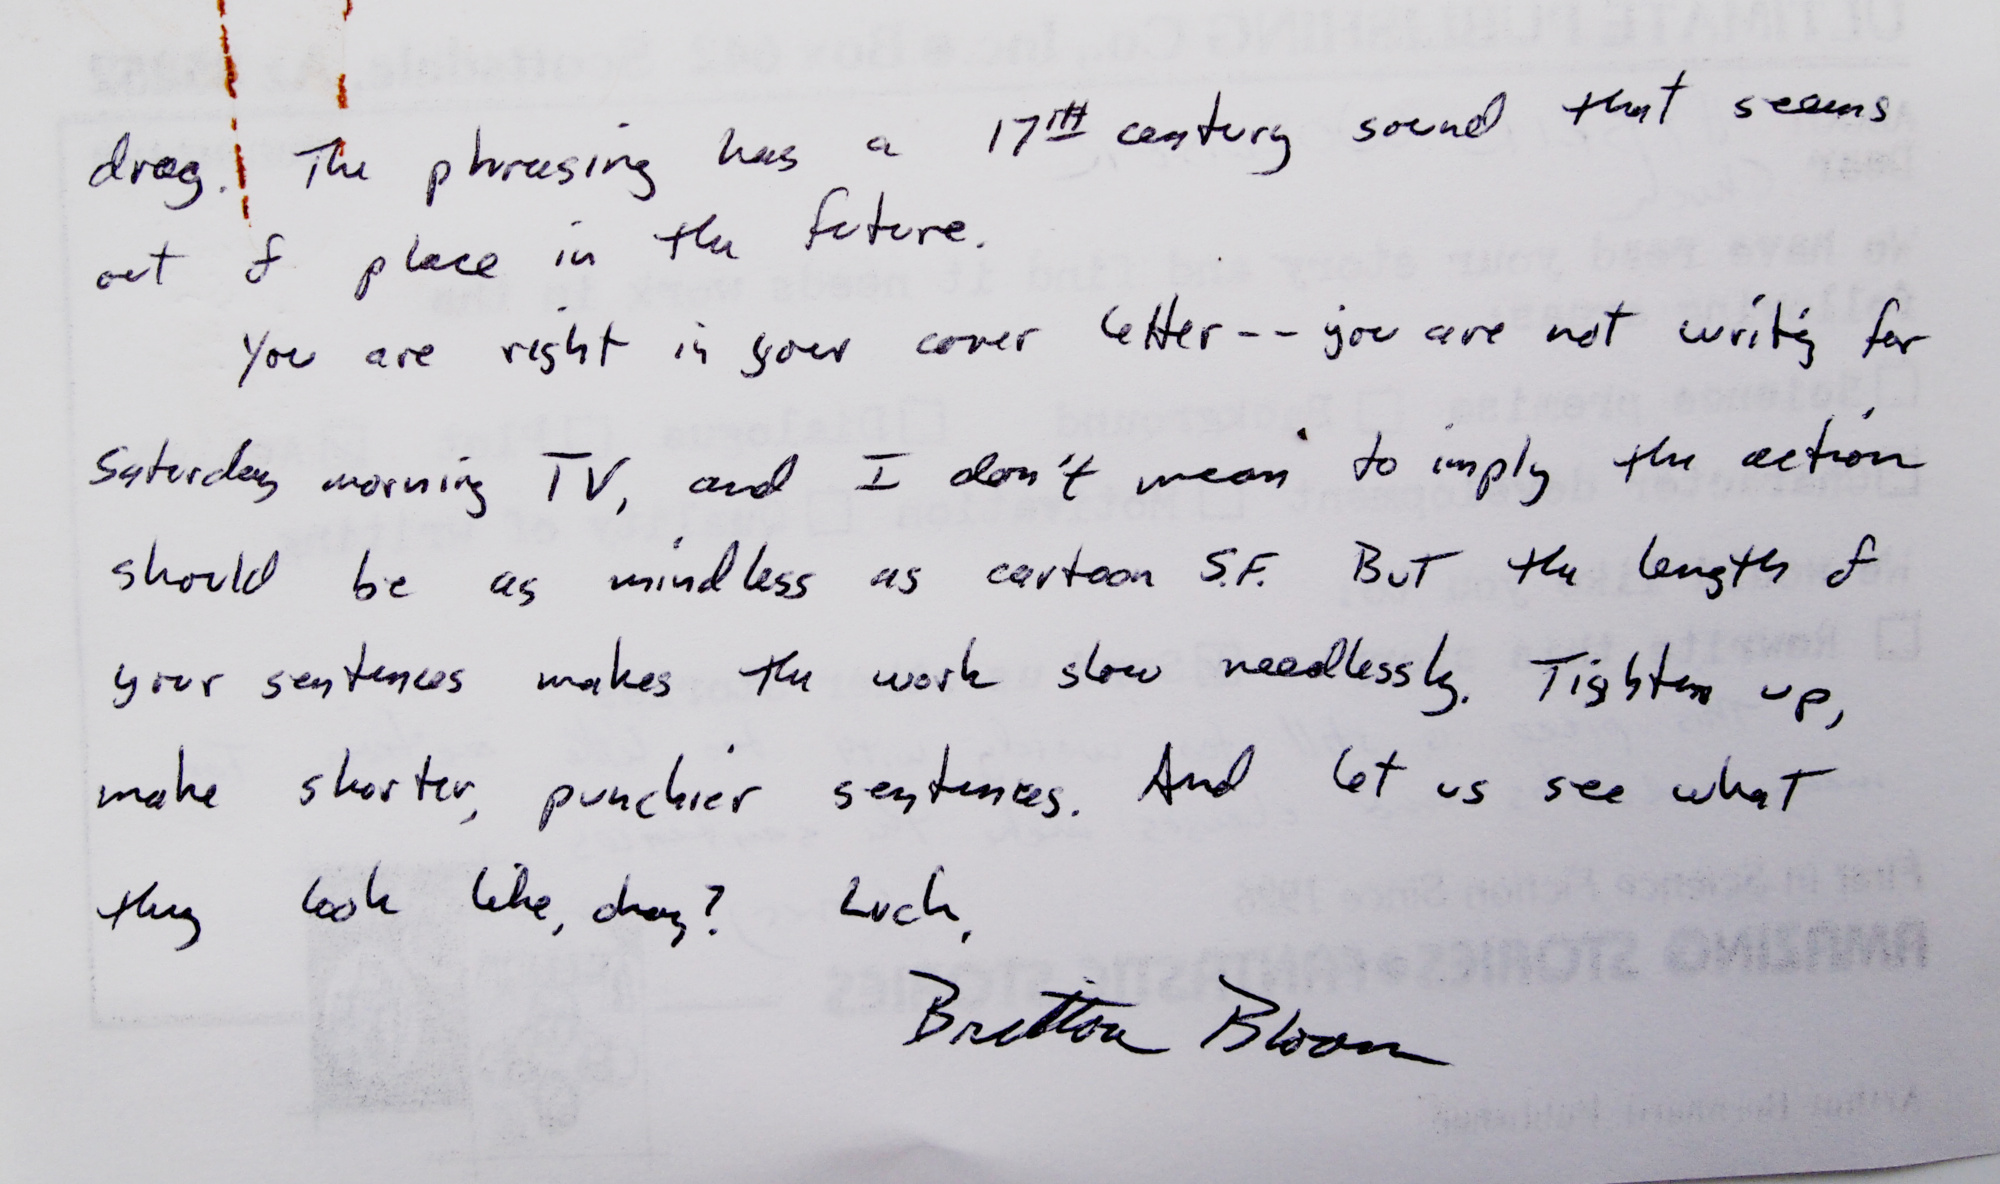 drag. The phrasing has a 17TH century sound that seems
out of place in the future.
You are right in your cover letter -- you are not writing for
Saturday morning TV, and I don't mean to imply the action
should be as mindless as cartoon S.F. But the length of
your sentences makes the work slow needlessly. Tighten up,
make shorter, punchier sentences. And let us see what
they look like, okay? Luck,
Bretton Bloom